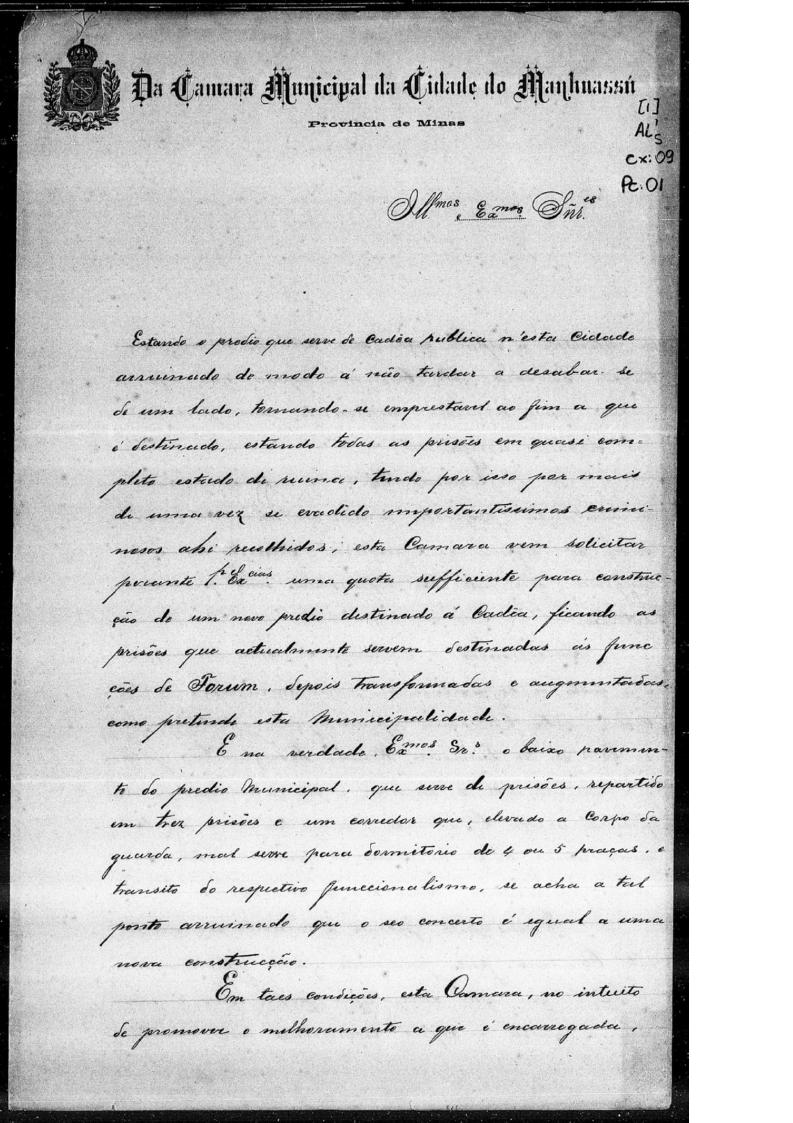 Da Camara Municipal da Cidade do Manhuassú
Provincia de Minas
[1]
AL's
Cx: 09
Pc: 01
Ill.mos e Ex.mos Sñr.es
Estando o predio que serve de Cadêa publica n'esta Cidade
arruinado de modo á não tardar a desabar-se
de um lado, tornando-se emprestavel ao fim a que
é destinado, estando todas as prisões em quasi com-
pleto estado de ruina, tendo por isso por mais
de uma vez se evadido importantissimos crimi-
nosos ahi recolhidos; esta Camara vem solicitar
perante Ex.cias uma quota sufficiente para construc-
ção de um novo predio destinado á Cadêa, ficando as
prisões que actualmente servem destinadas ás func
ções de Forum, depois transformadas e augmentadas,
como pretende esta Municipalidade.
E na verdade, Ex.mos Sr.s o baixo pavimen-
to do predio Municipal, que serve de prisões, repartido
em trez prisões e um corredor que, elevado a Corpo da
guarda, mal serve para dormitorio de 4 ou 5 praças, e
transito do respectivo funccionalismo, se acha a tal
ponto arruinado que o seo concerto é egual a uma
nova construcção.
Em taes condições, esta Camara, no intuito
de promover o melhoramento a que é encarregada,